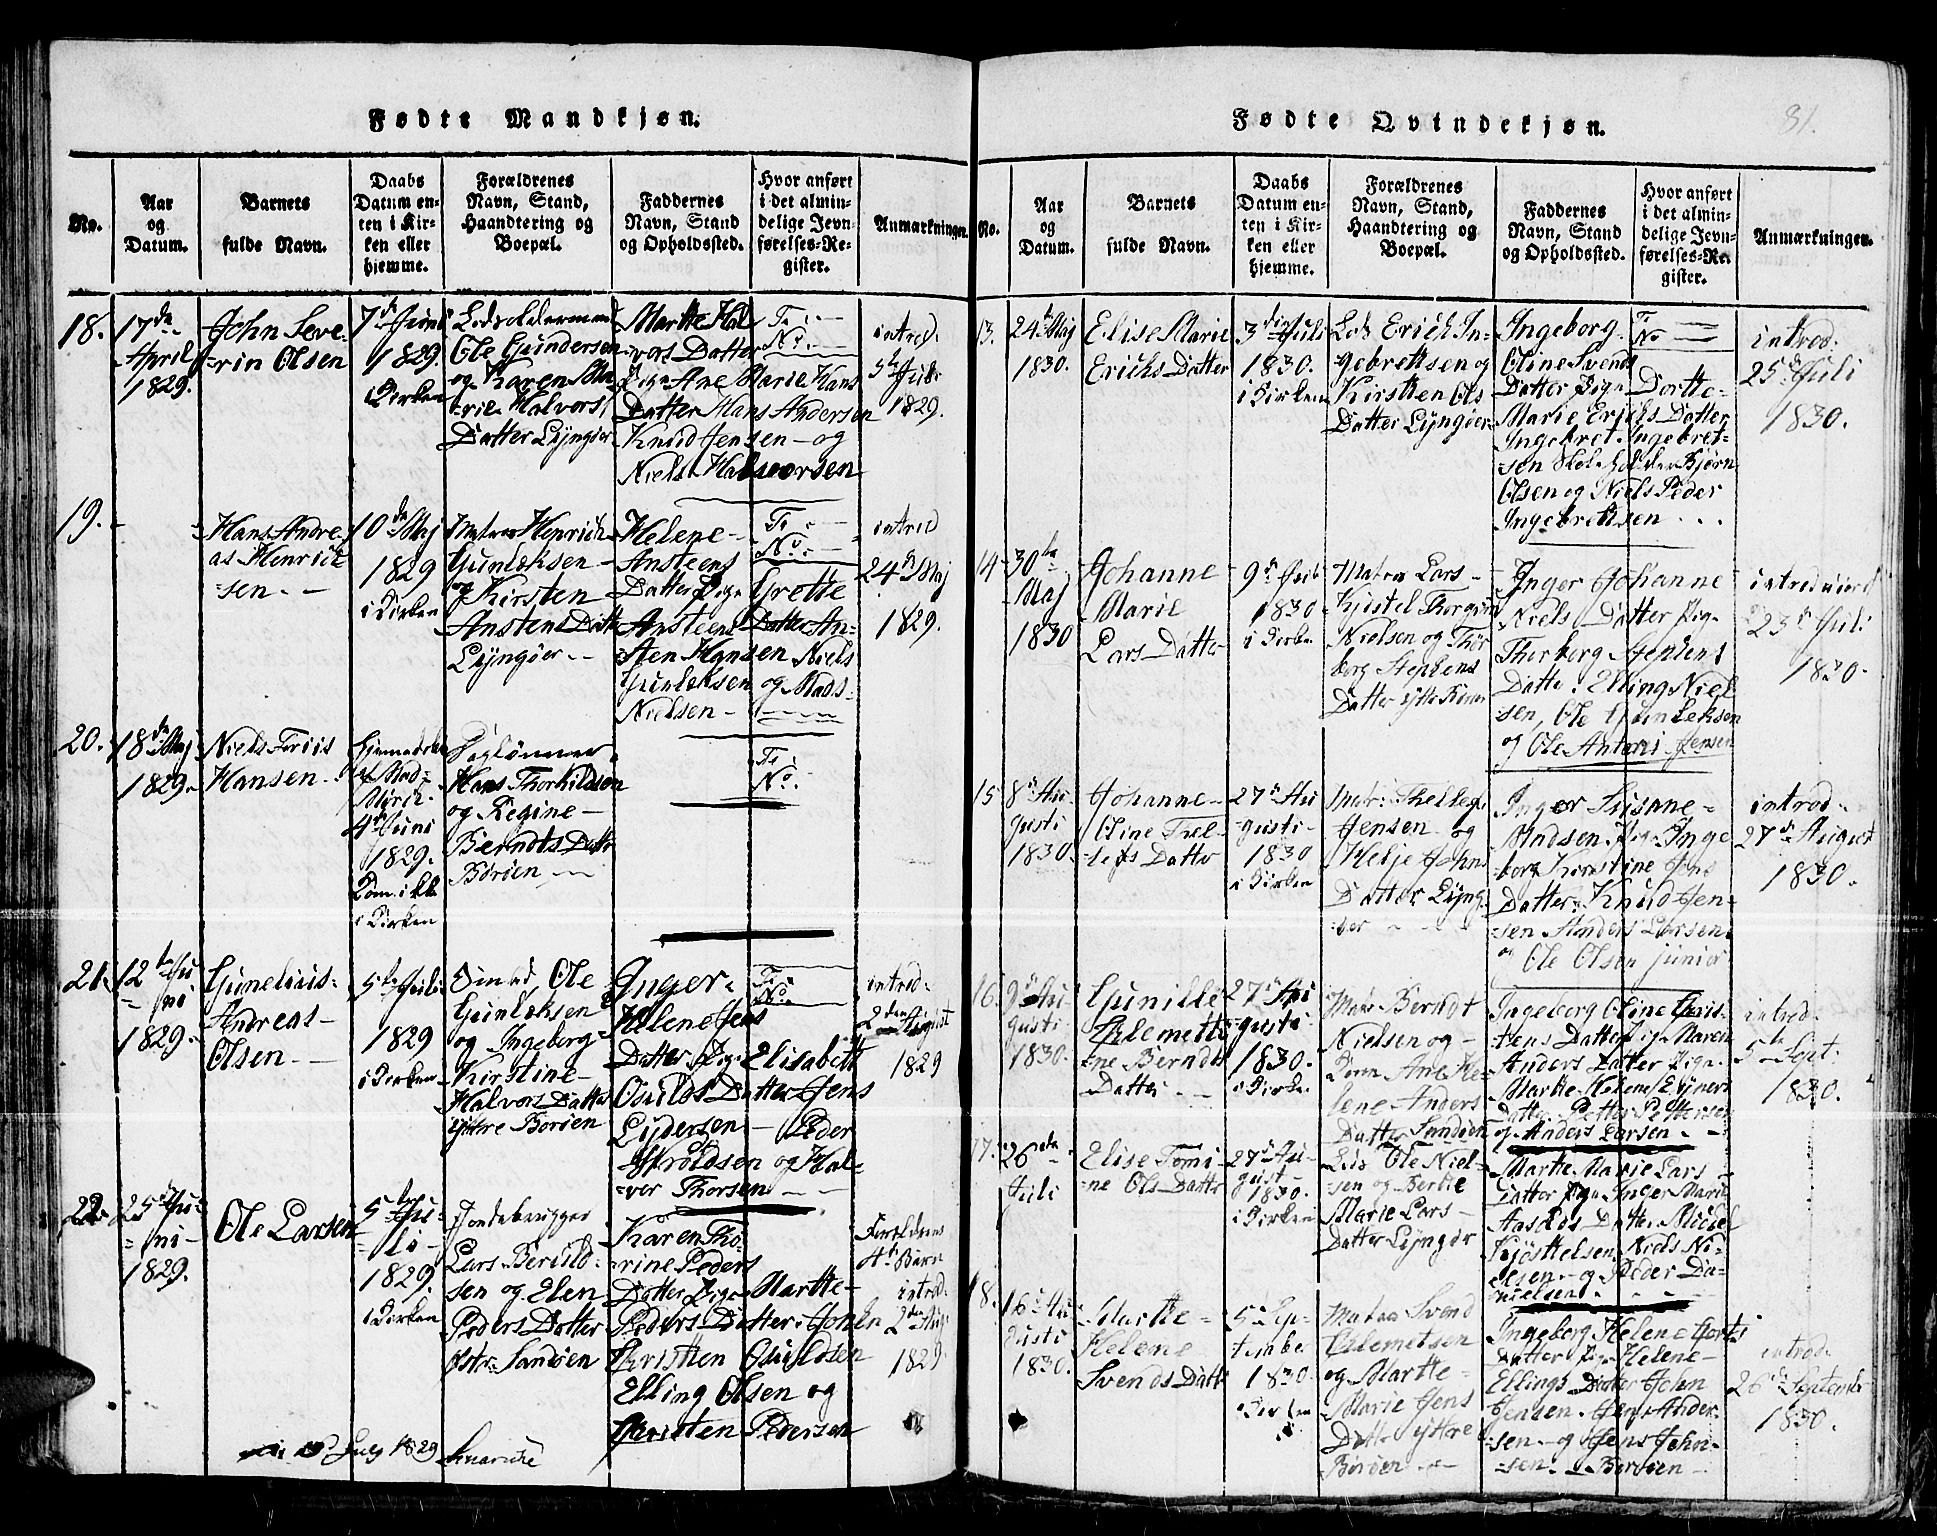 Fødte Mandkjøn.
No.
Aar
og
Datum.
Barnets
fulde Navn.
Daabs
Datum en-
ten i Kir-
ken eller
hjemme.
Forældrenes
Navn, Stand,
Haandtering og
Boepæl.
Faddernes
Navn, Stand
og Opholdssted.
Hvor anført
i det almin-
delige Jevn-
førelses-Re-
gister.
Anmærkninger.
18.
17de
April
1829.
John Seve-
rin Olsen
7de Juni
1829.
i Kirken
Lodsoldermand
Ole Gundersen
og Karen Ma-
rie Halvors
Datter Lyngøer
Marthe Hal
vors Datter
Pige Ane Marie Hans
Datter Hans Andersen
Knud Jensen - og
Niels Halvorsen
F. -
No. -
introd.
5te Juli
1829.
19.
Hans Andre-
as Henrich-
sen. -
10de Maj
1829
i Kirken
Matros Henrich
Gunleksen -
og Kirsten
Anstens Datter
Lyngøer -
Helene -
Ansteens
Datter Pige Grethe
Ansteens Datter An-
sten Hansen Niels
Gunleksen og Mads
Nielsen -
F. -
No. -
introd
24de Maj
1829.
20.
18de Maj
1829.
Niels Friis
Hansen -
4de Juni
1829.
i Kirken
Daglønner
Hans Thorkildsen
og Regine -
Berndts Datter
Borøen -
F.
No.
21.
12te Ju-
ni
1829.
Gunelius-
Andreas -
Olsen -
5te Juli
1829
i Kirken
Ole
Gunleksen
og Ingeborg
Kirstine -
Halvors Datter
Yttre Borøen
Inger -
Helene Jens
Datter Pige Elisabeth
Osulds Datter Jens
Lydersen - Peder
Askoldsen og Hal-
vor Thorsen -
F.
No.
introd.
2den August
1829
22.
25de Ju-
ni -
1829.
Ole Larsen
5te Ju-
li -
1829.
i Kirken
Jordebrugger
Lars Beruld-
sen og Elen
Peders Datter
Østr. Sandøen
Karen Tho-
rine Peders
Datter Pige Marthe -
Peders Datter John
Christen Osuldsen
Elling Olsen og
Christen Pedersen
Forældrenes
4de Barn
introd.
2den Aug.
1829.
July 1829
Fødte Qvindekjøn.
81.
No.
Aar
og
Datum.
Barnets
fulde Navn.
Daabs
Datum en-
ten i Kir-
ken eller
hjemme.
Forældrenes
Navn, Stand,
Haandtering og
Boepæl.
Faddernes
Navn, Stand
og Opholdsted.
Hvor anført
i det almin-
delige Jevn-
førelses-Re-
gister.
Anmærkninger.
13.
24de Maj
1830.
Elise Marie
Erichs Datter
3die Juli
1830.
i Kirken
Lods Erich In-
gebrettsen og
Kirsten Ols
Datter Lyngøer
Ingeborg
Oline Svends
Datter Pige Dorthe-
Marie Erichs Datter
Ingebret Ingebret-
sen Skoleholder Bjørn
Olsen og Niels Peder
Ingebrettsen
F. -
No. -
introd.
25de Juli
1830.
14
30te
Maj
1830
Johanne
Marie
Lars Datter
9de Juli
1830
i Kirken
Matros Lars -
Nielsen og Thor
borg Stephens
Datter Yttre Borøen
Inger Johanne
Niels Datter Pige
Thorborg Stephens
Datter. Elling Niel
sen, Ole Gunleksen
og Ole Antoni Jensen
introducered
23de Juli
1830.
15
8de Au-
gusti
1830.
Johanne -
Oline Thel-
lefs Datter
27de Au
gusti -
1830
i Kirken
Matr: Thellef
Jensen og
Helje Johns
Datter Lyng-
øer
Inger Susanne -
Madsen. Pige Inge
borg Kirstine Jens
Datter. Knud Jen-
sen Anders Larsen
og Ole Olsen junior
introd.
27de August
1830.
16.
9de Au-
gusti
1830.
Gunille
Clementi-
ne Berndts
Datter -
27de Au
gusti-
1830.
i Kirken
Matr. Berndt
Nielsen og -
Kone Ane He-
lene Anders
Datter Sandøen
Ingeborg Oline Chris-
tens Datter Pige Maren
Anders Datter Pige
Marthe Helene Ejvers
Datter Petter Pettersen
og Anders Larsen -
introd.
5te Sept:
1830.
17.
26de
Juli
Elise Tomi-
ne Ols Datter
27de Au-
gust -
1830.
i Kirken
Lods Ole Niel-
sen og Berthe
Marie Lars -
Datter Lyngør
Marthe Marie Lars -
Datter Pige Inger Marie
Aasulds Datter Michel
Kjøstelsen Niels Ni-
elsen - og Peder Da-
nielsen.
18.
16de Au
gusti
1830.
Marthe -
Helene
Svends Datter
5te Sep-
tember
1830.
i Kirken
Matros Svend
Clemetsen
og Marthe -
Marie Jens
Datter Yttre
Borøen -
Ingeborg Helene Gorts
Datter Pige Helene -
Ellings Datter John
Jensen. Jens Ander-
sen - og Jens John-
sen - Borøen -
introd.
26de September
1830.